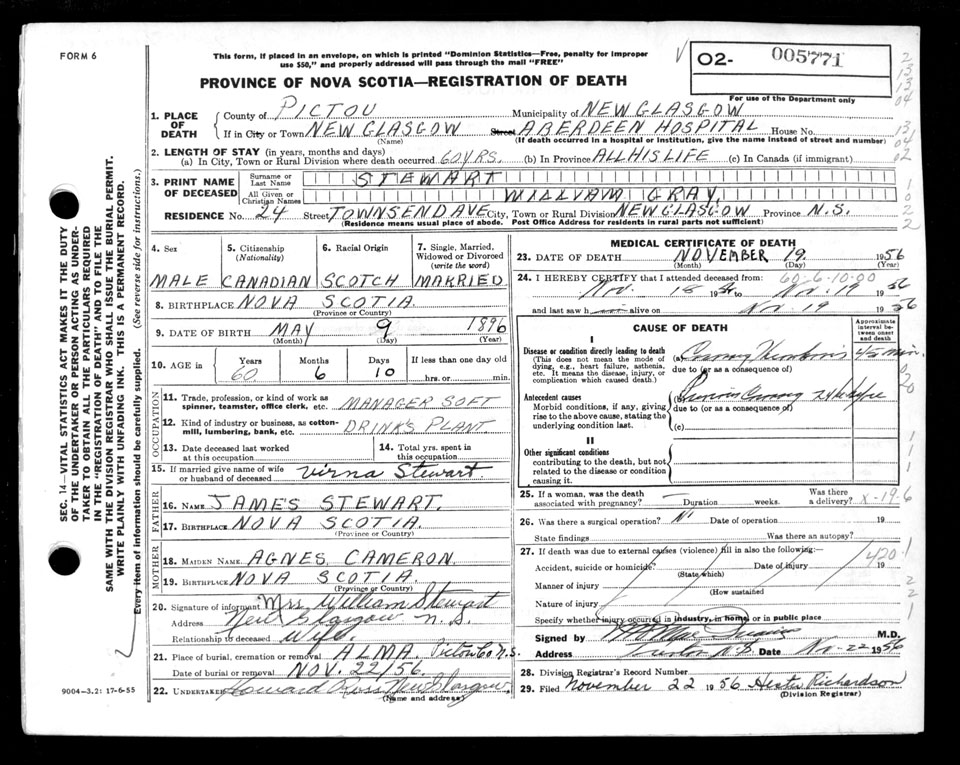 FORM 6
This form, if placed in an envelope, on which is printed "Dominion Statistics—Free, penalty for improper
use $50," and properly addressed will pass through the mail "FREE"
PROVINCE OF NOVA SCOTIA—REGISTRATION OF DEATH
02- 005771
For use of the Department only
SEC. 14—VITAL STATISTICS ACT MAKES IT THE DUTY
OF THE UNDERTAKER OR PERSON ACTING AS UNDER-
TAKER TO OBTAIN ALL THE PARTICULARS REQUIRED
IN THE "REGISTRATION OF DEATH" AND TO FILE THE
SAME WITH THE DIVISION REGISTRAR WHO SHALL ISSUE THE BURIAL PERMIT.
WRITE PLAINLY WITH UNFADING INK. THIS IS A PERMANENT RECORD.
Every item of information should be carefully supplied. (See reverse side for instructions.)
1. PLACE OF DEATH
County of PICTOU Municipality of NEW GLASGOW
If in City or Town NEW GLASGOW Street ABERDEEN HOSPITAL House No.
(Name) (If death occurred in a hospital or institution, give the name instead of street and number)
2. LENGTH OF STAY (in years, months and days)
(a) In City, Town or Rural Division where death occurred 60 YRS. (b) In Province ALL HIS LIFE (c) In Canada (if immigrant)
3. PRINT NAME OF DECEASED
Surname or Last Name STEWART
All Given or Christian Names WILLIAM GRAY
RESIDENCE No. 24 Street TOWNSEND AVE City, Town or Rural Division NEW GLASGOW Province N.S.
(Residence means usual place of abode. Post Office Address for residents in rural parts not sufficient)
4. Sex 5. Citizenship (Nationality) 6. Racial Origin 7. Single, Married, Widowed or Divorced (write the word)
MALE CANADIAN SCOTCH MARRIED
8. BIRTHPLACE NOVA SCOTIA
(Province or Country)
9. DATE OF BIRTH MAY 9 1896
(Month) (Day) (Year)
10. AGE in Years Months Days If less than one day old
60 6 10 hrs. or min.
OCCUPATION
11. Trade, profession, or kind of work as spinner, teamster, office clerk, etc. MANAGER SOFT
12. Kind of industry or business, as cotton-mill, lumbering, bank, etc. DRINKS PLANT
13. Date deceased last worked at this occupation 14. Total yrs. spent in this occupation
15. If married give name of wife or husband of deceased Virna Stewart
FATHER
16. NAME JAMES STEWART.
17. BIRTHPLACE NOVA SCOTIA.
(Province or Country)
MOTHER
18. MAIDEN NAME AGNES CAMERON.
19. BIRTHPLACE NOVA SCOTIA.
(Province or Country)
20. Signature of informant Mrs William Stewart
Address New Glasgow N.S.
Relationship to deceased Wife
21. Place of burial, cremation or removal ALMA. Pictou Co N.S.
Date of burial or removal NOV. 22/56.
22. UNDERTAKER Howard Ross New Glasgow
(Name and address)
9004—3.2: 17-6-55
MEDICAL CERTIFICATE OF DEATH
23. DATE OF DEATH NOVEMBER 19 1956
(Month) (Day) (Year)
24. I HEREBY CERTIFY that I attended deceased from: 60-6-10-00
Nov. 18 1956 to Nov. 19 1956
and last saw h alive on Nov 19 1956
CAUSE OF DEATH
Approximate interval between onset and death
I
Disease or condition directly leading to death
(This does not mean the mode of dying, e.g., heart failure, asthenia, etc. It means the disease, injury, or complication which caused death.)
(a) 45 min.
due to (or as a consequence of)
Antecedent causes
Morbid conditions, if any, giving rise to the above cause, stating the underlying condition last.
due to (or as a consequence of)
(c)
II
Other significant conditions
contributing to the death, but not related to the disease or condition causing it.
25. If a woman, was the death associated with pregnancy? Duration weeks. Was there a delivery? X-19-6
26. Was there a surgical operation? Date of operation 19
State findings Was there an autopsy?
27. If death was due to external causes (violence) fill in also the following:
Accident, suicide or homicide? Date of injury 19
(State which) 420-1
Manner of injury
(How sustained)
Nature of injury
Specify whether injury occurred in industry, in home or in public place
Signed by M.D.
Address N.S. Date Nov-22 1956
28. Division Registrar's Record Number
29. Filed November 22 1956 Richardson
(Division Registrar)